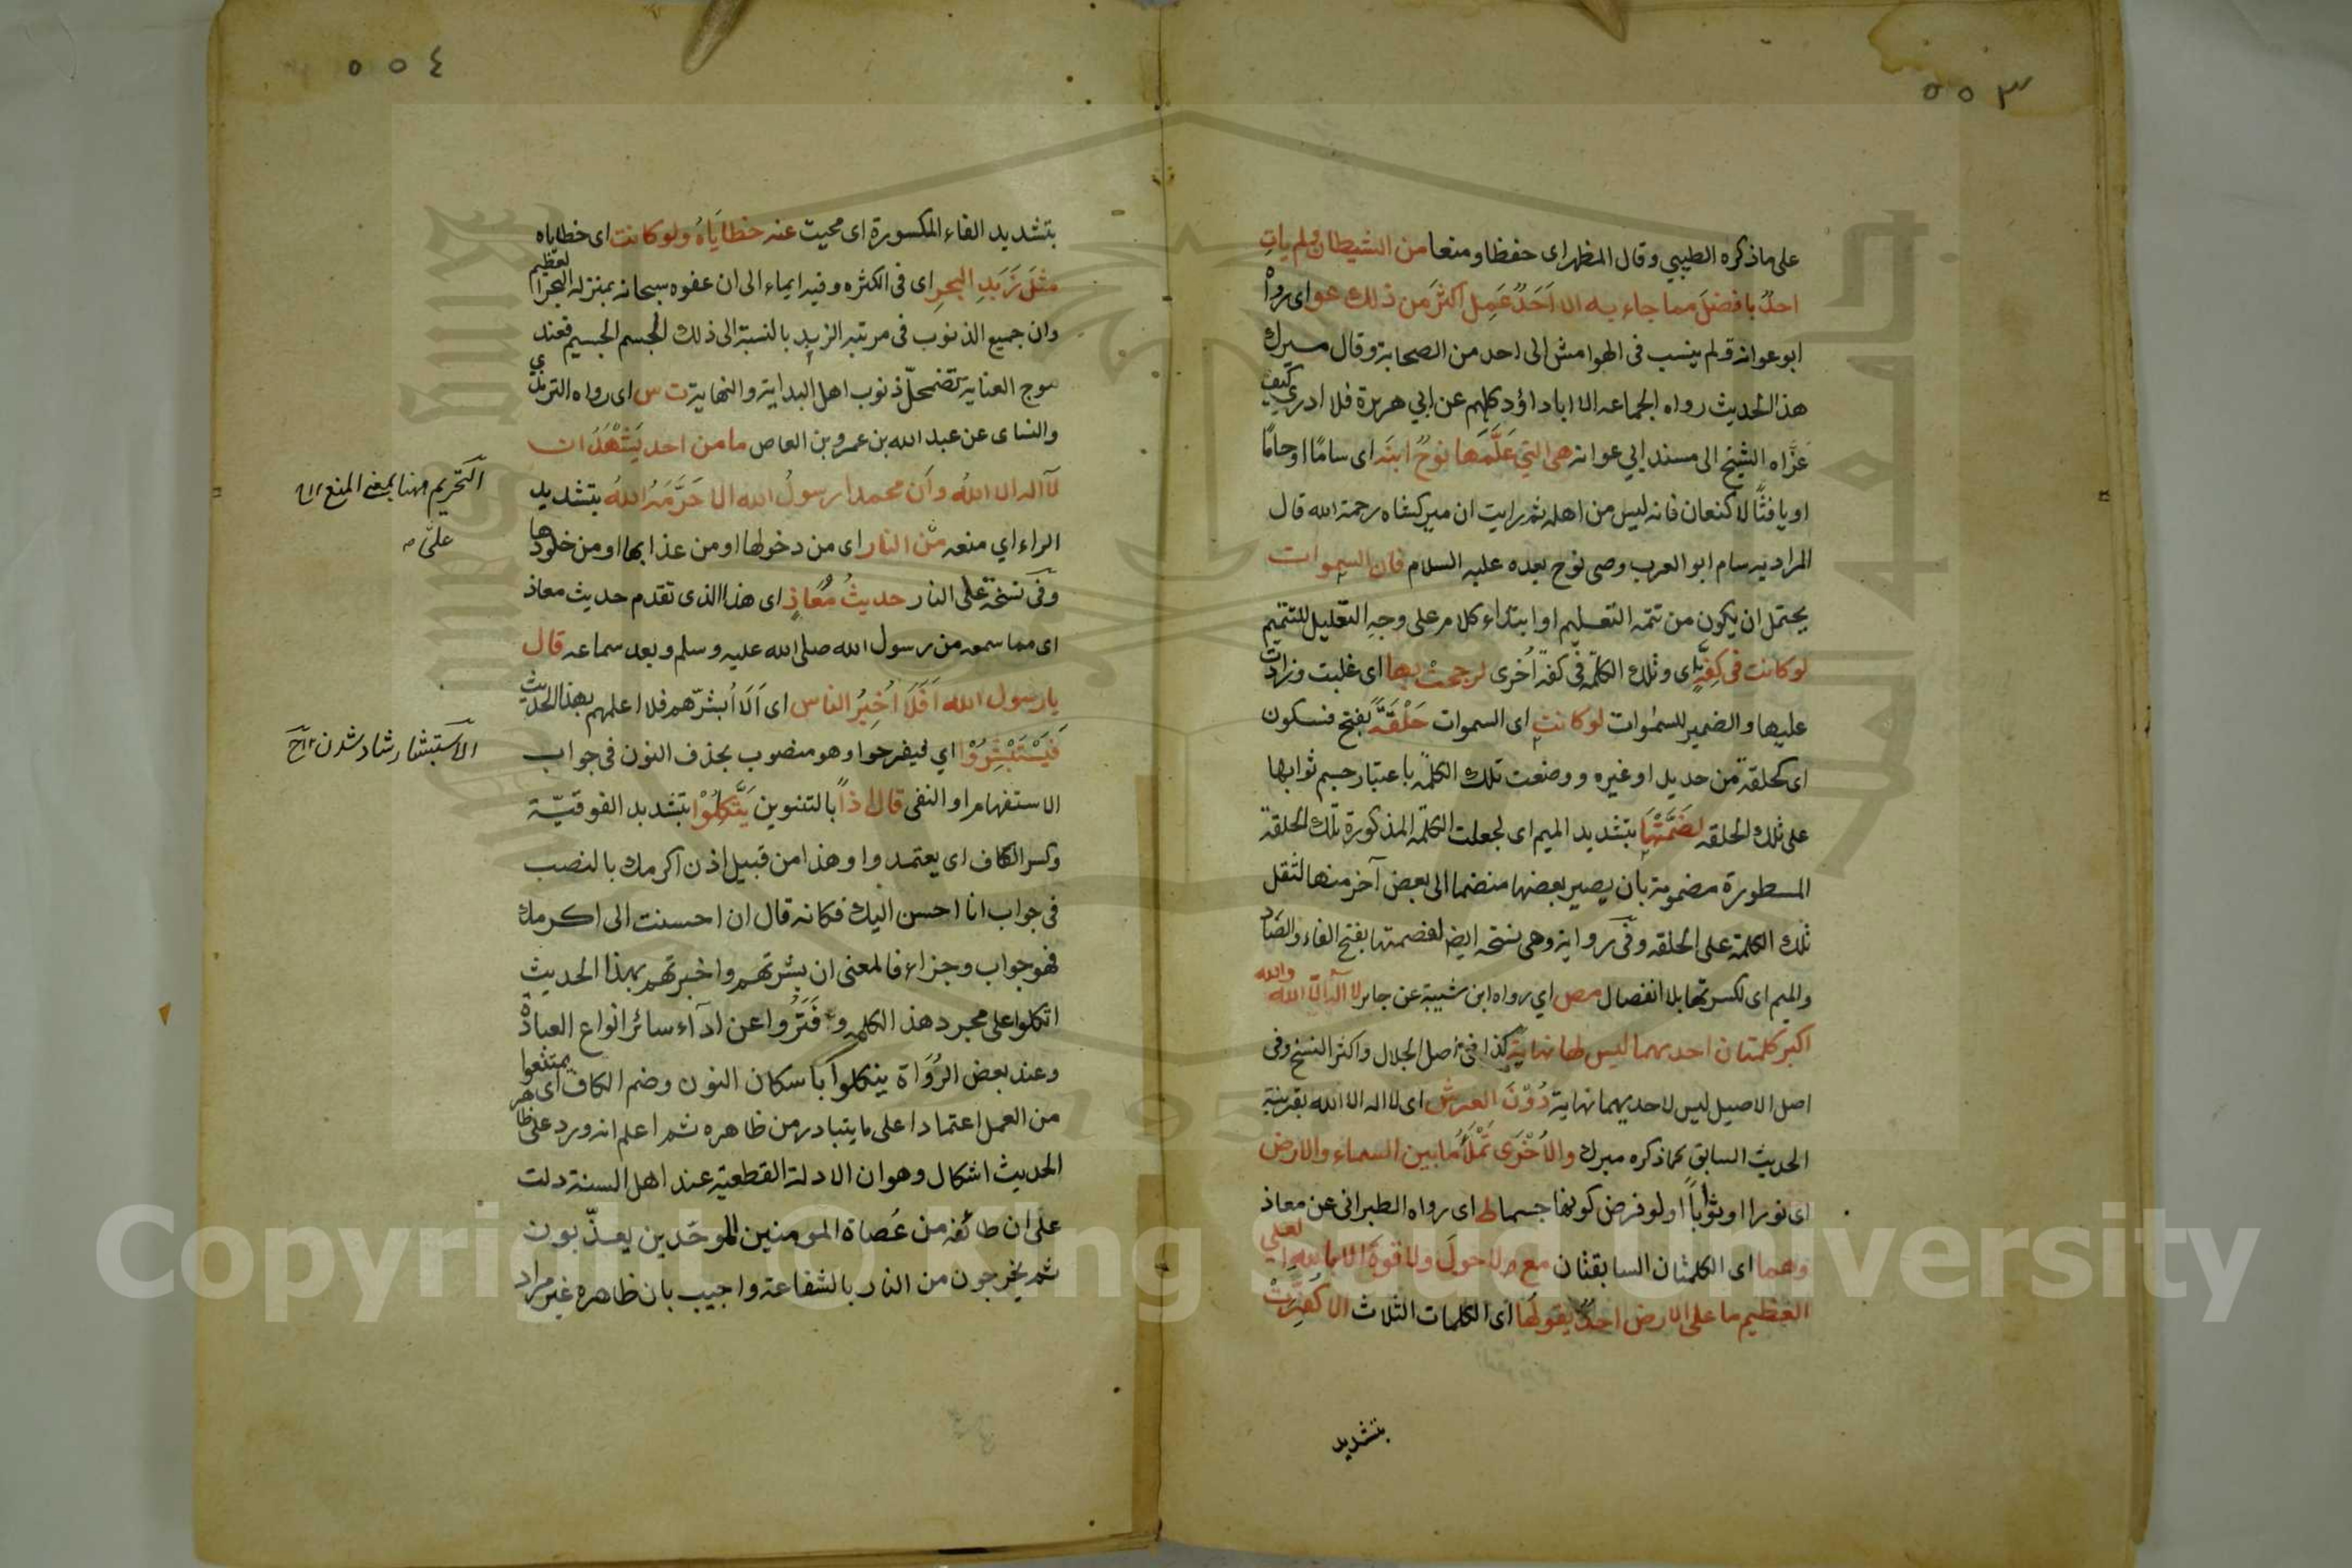 ٥٥٣
على ما ذكره الطيبي وقال المظهر اى حفظا ومنعا من الشيطان ولم يات
احد بافضل مما جاء به الا احد عمل اكثر من ذلك عو اى رواه
ابو عوانة ولم ينسب فى الهوامش الى احد من الصحابة وقال ميرك
هذا الحديث رواه الجماعة الا ابا داؤد كلهم عن ابي هريرة فلا ادري كيف
عزاه الشيخ الى مسند ابي عوانة هى التي علمها نوح ابنه اى ساما او حاما
او يافثا لا كنعان فانه ليس من اهله ثم رايت ان ميركشاه رحمة الله قال
المراد به سام ابو العرب وصى نوح بعده عليه السلام فان السموات
يحتمل ان يكون من تتمة التعليم او ابتداء كلام على وجه التعليل للتتميم
لو كانت فى كفة اى وتلك الكلمة فى كفة اخرى لرجحت بها اى غلبت وزادت
عليها والضمير للسموات لو كانت اى السموات حلقة بفتح فسكون
اى كحلقة من حديد او غيره ووضعت تلك الكلمة باعتبار جسم ثوابها
على تلك الحلقة لضمتها بتشديد الميم اى لجعلت الكلمة المذكورة تلك الحلقة
المسطورة مضمومة بان يصير بعضها منضما الى بعض آخر منها لثقل
تلك الكلمة على الحلقة وفى رواية وهى نسخة ايض لفصمتها بفتح الفاء والصاد
والميم اى لكسرتها بلا انفصال مص اي رواه ابن شيبة عن جابر لا اله الا الله والله
اكبر كلمتان احديهما ليس لها نهاية كذا فى اصل الجلال واكثر النسخ وفى
اصل الاصيل ليس لاحديهما نهاية دون العرش اى لا اله الا الله بقرينة
الحديث السابق كما ذكره ميرك والاخرى تملأ ما بين السماء والارض
اى نورا او ثوابا او لو فرض كونها جسما ط اى رواه الطبرانى عن معاذ
وهما اى الكلمتان السابقتان مع ولا حول ولا قوة الا بالله العلي
العظيم ما على الارض احد يقولها اى الكلمات الثلاث الا كفرت
بتشديد
٥٥٤
بتشديد الفاء المكسورة اى محيت عنه خطاياه ولو كانت اى خطاياه
مثل زبد البحر اى فى الكثرة وفيه ايماء الى ان عفوه سبحانه بمنزلة البحر العظيم
وان جميع الذنوب فى مرتبة الزبد بالنسبة الى ذلك الجسم الجسيم فعند
موج العناية تضمحل ذنوب اهل البداية والنهاية ت س اى رواه الترمذي
والنساى عن عبد الله بن عمرو بن العاص ما من احد يشهد ان
لا اله الا الله وان محمدا رسول الله الا حرمه الله بتشديد
الراء اي منعه من النار اى من دخولها او من عذابها او من خلودها
وفى نسخة على النار حديث معاذ اى هذا الذى تقدم حديث معاذ
اى مما سمعه من رسول الله صلى الله عليه وسلم وبعد سماعه قال
يا رسول الله افلا اخبر الناس اى الا ابشرهم فلا اعلمهم بهذا الحديث
فيستبشروا اي ليفرحوا وهو منصوب بحذف النون فى جواب
الاستفهام او النفى قال اذا بالتنوين يتكلوا بتشديد الفوقية
وكسر الكاف اى يعتمدوا وهذا من قبيل اذن اكرمك بالنصب
فى جواب انا احسن اليك فكانه قال ان احسنت الى اكرمك
فهو جواب وجزاء فالمعنى ان بشرتهم واخبرتهم بهذا الحديث
اتكلوا على مجرد هذه الكلمة وفتروا عن ادآء سائر انواع العبادة
وعند بعض الرواة ينكلوا باسكان النون وضم الكاف اى يمتنعوا
من العمل اعتمادا على ما يتبادر من ظاهره ثم اعلم انه ورد على ظاهر
الحديث اشكال وهو ان الادلة القطعية عند اهل السنة دلت
على ان طائفة من عصاة المومنين الموحدين يعذبون
ثم يخرجون من النار بالشفاعة واجيب بان ظاهره غير مراد
التحريم ههنا بمعنى المنع
على
الاستبشار شاد شدن
Copyright © King Saud University